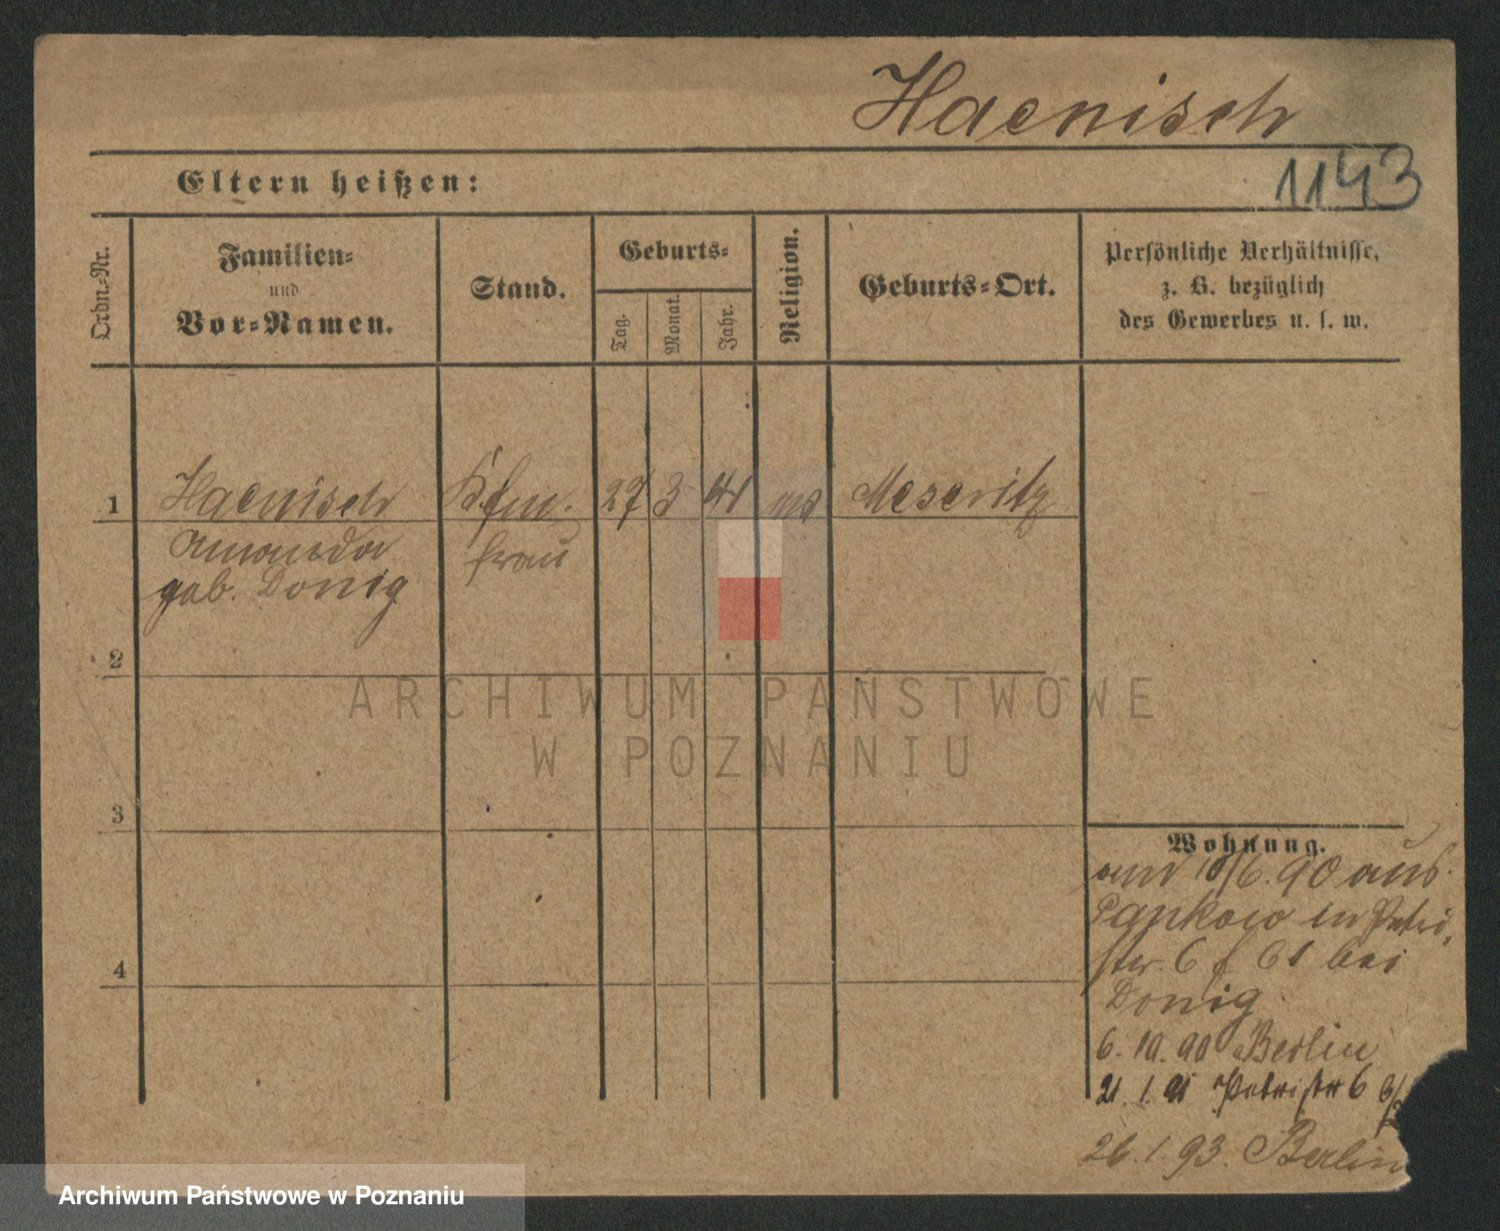 Haenisch
1143
Eltern heißen:
Ordn.-Nr.
Familien-
und
Vor-Namen.
Stand.
Geburts-
Tag.
Monat.
Jahr.
Religion.
Geburts-Ort.
Persönliche Verhältnisse,
z. B. bezüglich
des Gewerbes u. s. w.
1 Haenisch Kfm. 27 3 41 Meseritz
Amanda frau
geb. Donig
2
3
4
Wohnung.
am 18/6. 90 aus
Pankow in Petri,
str. 6 bei
Donig
6. 10. 90 Berlin
21. 1. 91 Petristr 6
26. 1. 93. Berlin
ARCHIWUM PAŃSTWOWE
W POZNANIU
Archiwum Państwowe w Poznaniu